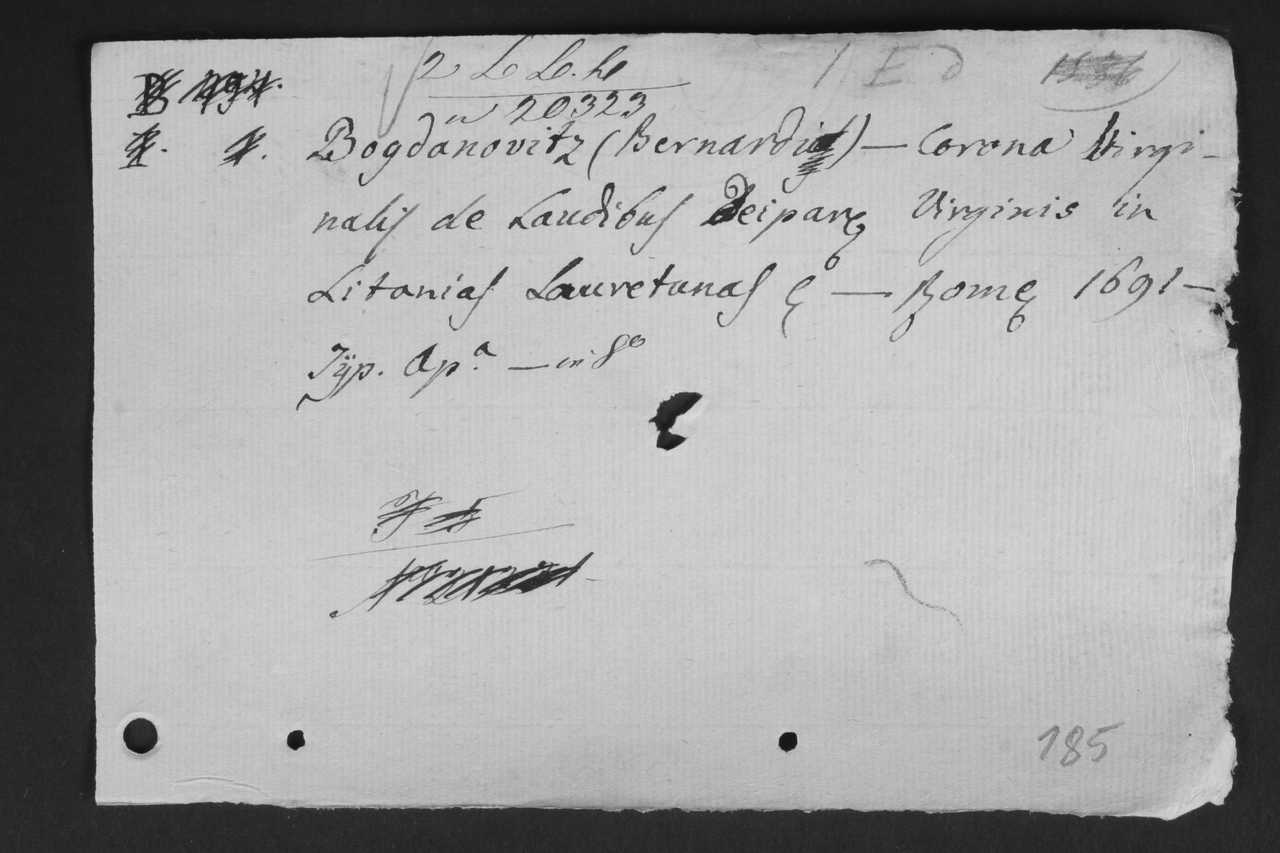 2 LLh
n 20323
Bogdanovitz (Bernardi) — Corona Virgi-
nalis de Laudibus Deiparę Virginis in
Litanias Lauretanas — Romę 1691 —
Typ. Ap.ª — in 8º
185